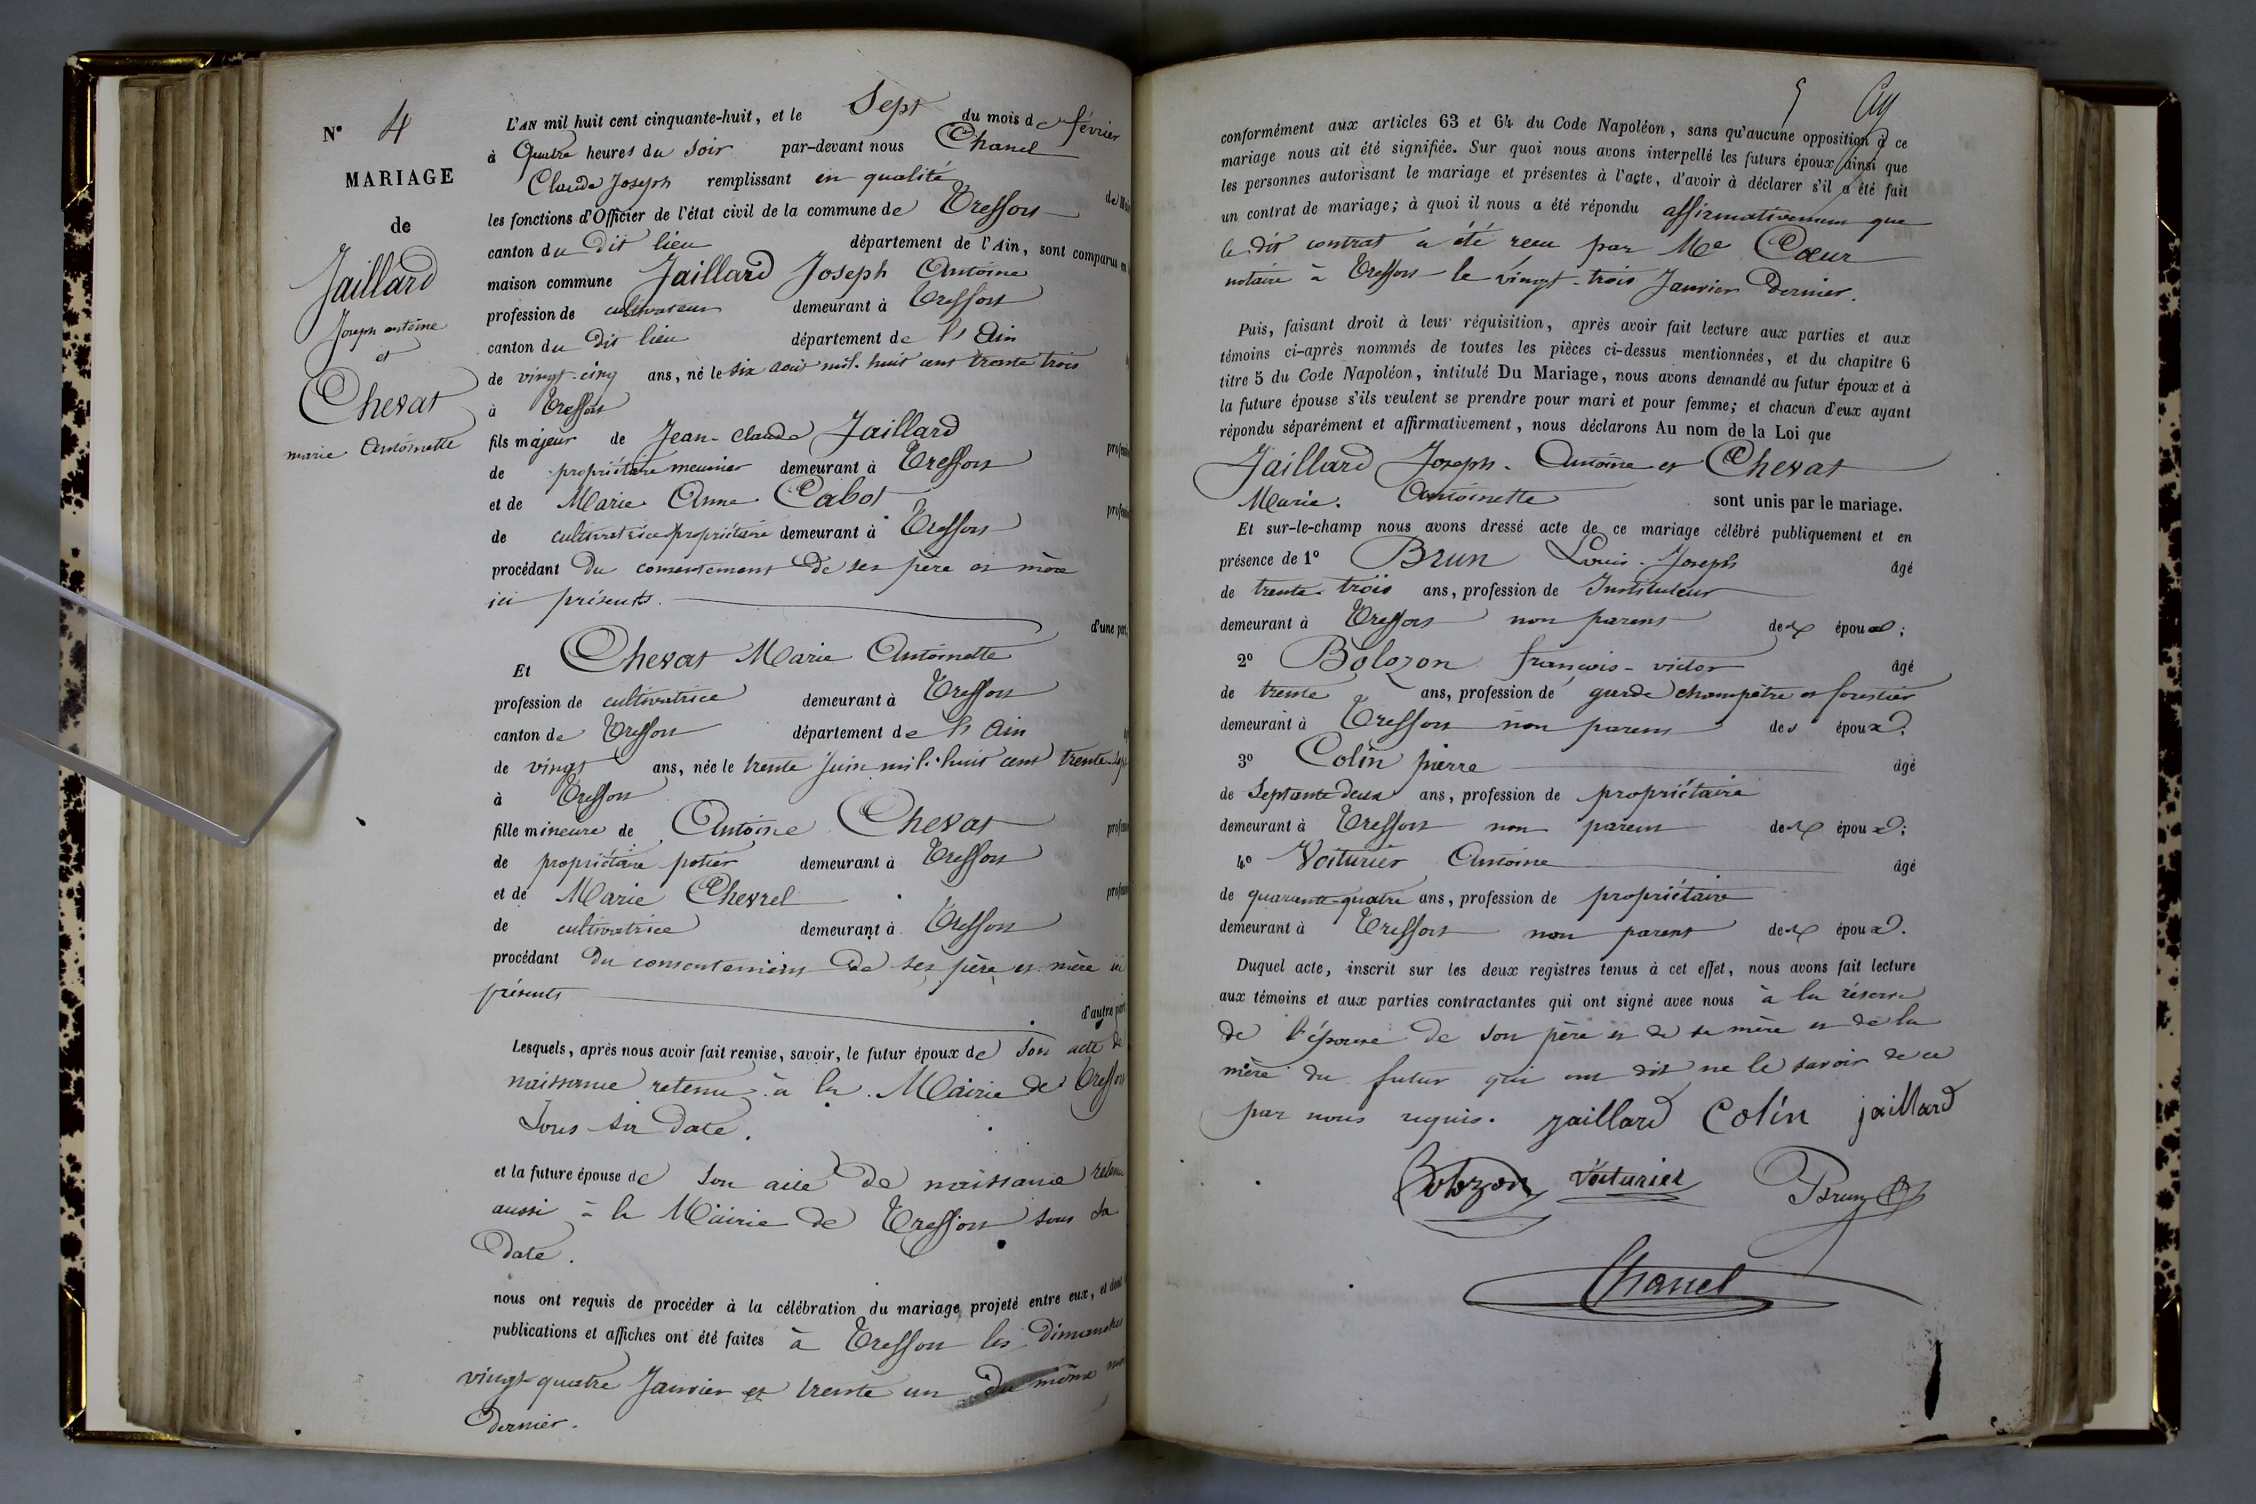 N° 4
MARIAGE
de
Jaillard
Joseph antoine
et
Chevat
marie Antoinette
L'AN mil huit cent cinquante-huit, et le Sept du mois de février
à Quatre heures du Soir par-devant nous Chanel
Claude Joseph remplissant en qualité de Maire
les fonctions d'Officier de l'état civil de la commune de Treffort
canton du Dit lieu département de l'Ain, sont comparus en
maison commune Jaillard Joseph Antoine
profession de cultivateur demeurant à Treffort
canton du Dit lieu département de l'Ain
de vingt-cinq ans, né le six aout mil huit cent trente trois
à Treffort
fils majeur de Jean-Claude Jaillard profession
de propriétaire meunier demeurant à Treffort
et de Marie Anne Cabot profession
de cultivatrice propriétaire demeurant à Treffort
procédant du consentement de ses père et mère
ici présents. d'une part,
Et Chevat Marie Antoinette
profession de cultivatrice demeurant à Treffort
canton de Treffort département de l'Ain
de vingt ans, née le trente Juin mil huit cent trente-sept
à Treffort
fille mineure de Antoine Chevat profession
de propriétaire potier demeurant à Treffort
et de Marie Chevrel profession
de cultivatrice demeurant à Treffort
procédant du consentement de ses père et mère ici
présents d'autre part
Lesquels, après nous avoir fait remise, savoir, le futur époux de son acte de
naissance retenu à la Mairie de Treffort
sous sa date.
et la future épouse de son acte de naissance retenu
aussi à la Mairie de Treffort sous sa
date.
nous ont requis de procéder à la célébration du mariage projeté entre eux, et dont
publications et affiches ont été faites à Treffort les dimanches
vingt-quatre Janvier et trente un du même mois
dernier.
5
conformément aux articles 63 et 64 du Code Napoléon, sans qu'aucune opposition à ce
mariage nous ait été signifiée. Sur quoi nous avons interpellé les futurs époux ainsi que
les personnes autorisant le mariage et présentes à l'acte, d'avoir à déclarer s'il a été fait
un contrat de mariage; à quoi il nous a été répondu affirmativement que
le dit contrat a été recu par Me Cœur
notaire à Treffort le vingt-trois Janvier Dernier.
Puis, faisant droit à leur réquisition, après avoir fait lecture aux parties et aux
témoins ci-après nommés de toutes les pièces ci-dessus mentionnées, et du chapitre 6
titre 5 du Code Napoléon, intitulé Du Mariage, nous avons demandé au futur époux et à
la future épouse s'ils veulent se prendre pour mari et pour femme; et chacun d'eux ayant
répondu séparément et affirmativement, nous déclarons Au nom de la Loi que
Jaillard Joseph-Antoine et Chevat
Marie Antoinette sont unis par le mariage.
Et sur-le-champ nous avons dressé acte de ce mariage célébré publiquement et en
présence de 1° Brun Louis-Joseph âgé
de trente-trois ans, profession de Instituteur
demeurant à Treffort non parent des époux;
2° Bolozon françois-victor âgé
de trente ans, profession de garde champêtre et forestier
demeurant à Treffort non parent des époux
3° Colin pierre âgé
de Septante deux ans, profession de propriétaire
demeurant à Treffort non parent des époux;
4° Voiturier Antoine âgé
de quarante-quatre ans, profession de propriétaire
demeurant à Treffort non parent des époux.
Duquel acte, inscrit sur les deux registres tenus à cet effet, nous avons fait lecture
aux témoins et aux parties contractantes qui ont signé avec nous à la réserve
de l'épouse de son père et de sa mère et de la
mère du futur qui ont dit ne le savoir de ce
par nous requis. jaillard Colin jaillard
Bolozon Voiturier Brun
Chanel